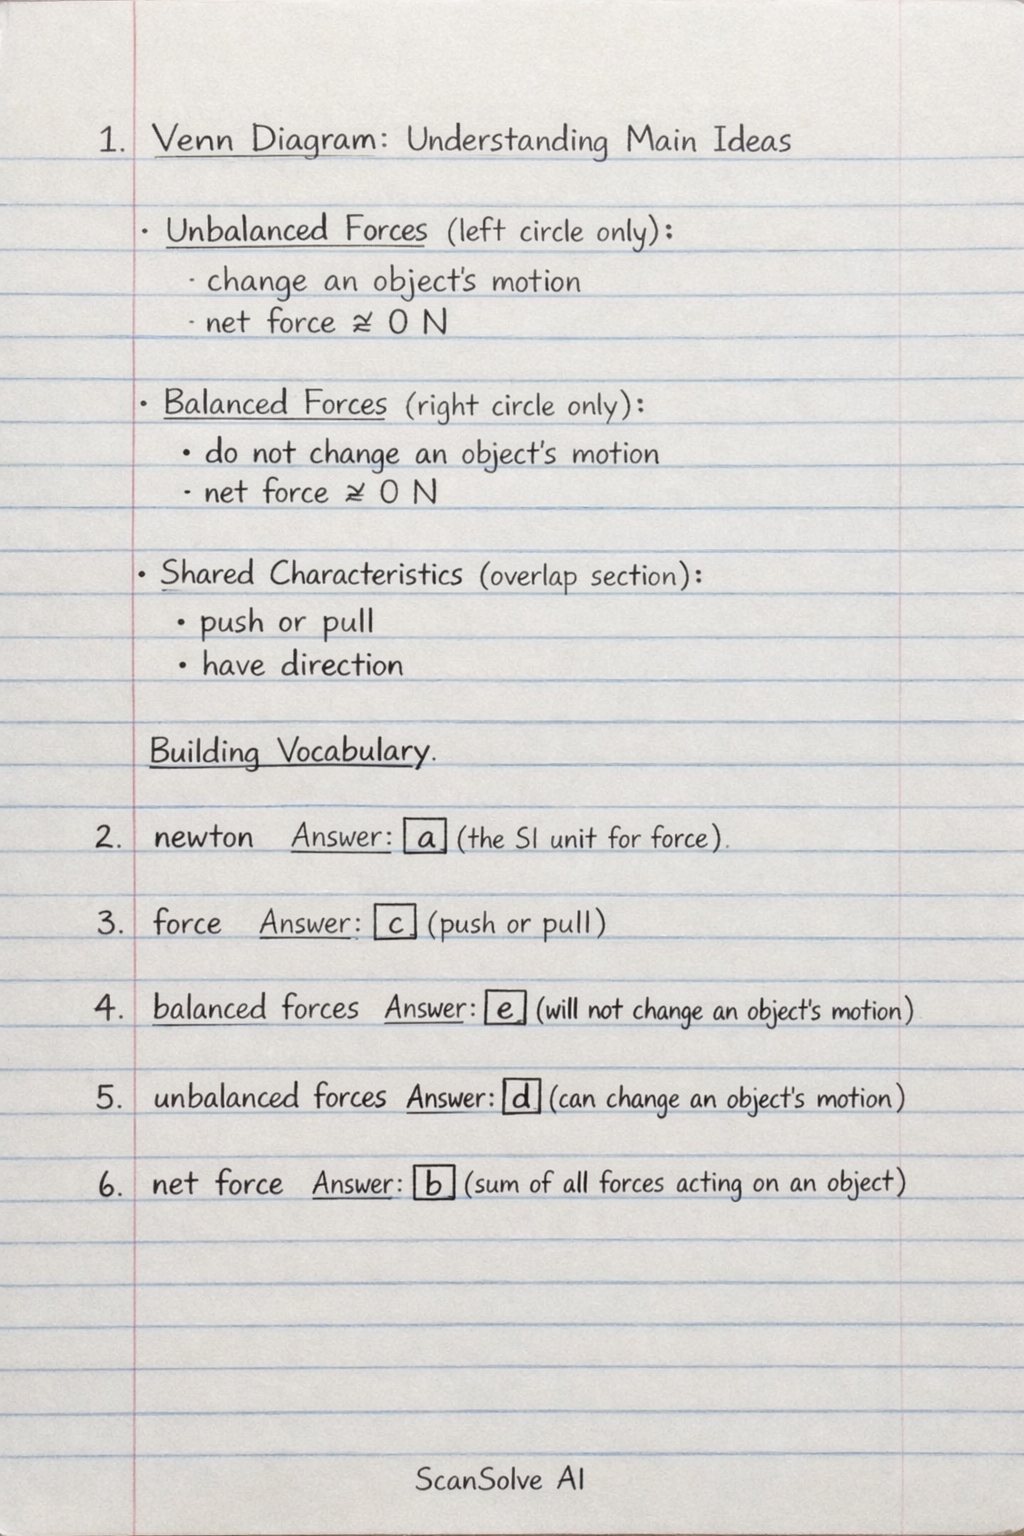 1. Venn Diagram: Understanding Main Ideas
· Unbalanced Forces (left circle only):
· change an object's motion
· net force ≇ 0 N
· Balanced Forces (right circle only):
• do not change an object's motion
· net force ≇ 0 N
• Shared Characteristics (overlap section):
• push or pull
• have direction
Building Vocabulary.
2. newton Answer: a (the SI unit for force).
3. force Answer: c (push or pull)
4. balanced forces Answer: e (will not change an object's motion)
5. unbalanced forces Answer: d (can change an object's motion)
6. net force Answer: b (sum of all forces acting on an object)
ScanSolve AI